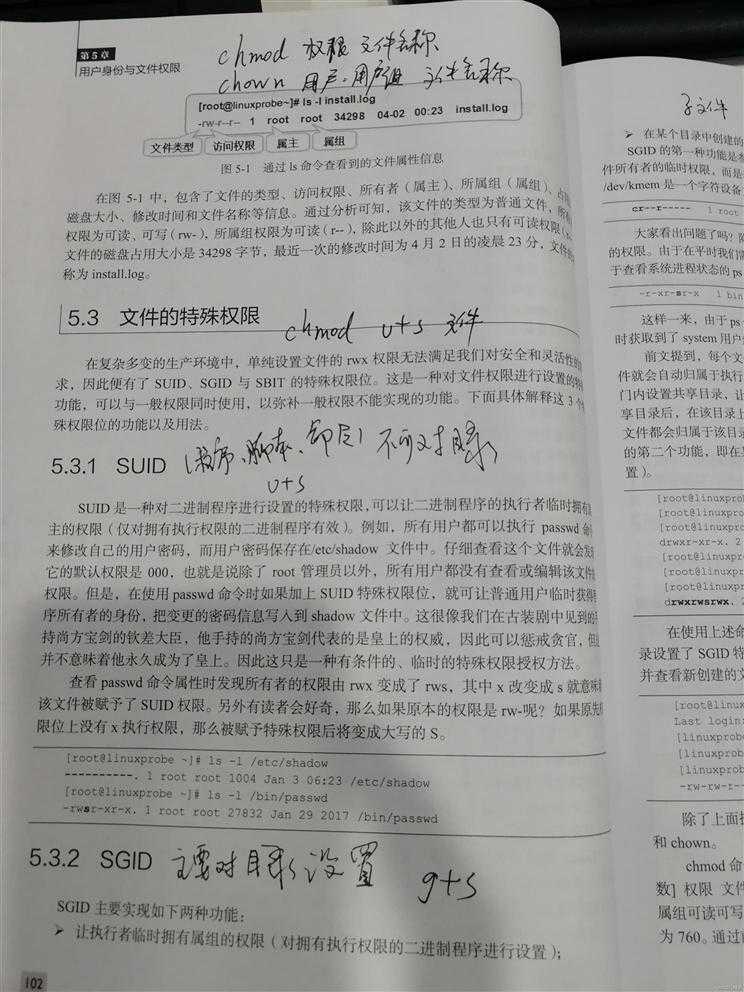 第5章
用户身份与文件权限
chmod 权限 文件名称
chown 用户.用户组 文件名称
[root@linuxprobe~]# ls -l install.log
-rw-r--r-- 1 root root 34298 04-02 00:23 install.log
文件类型 访问权限 属主 属组
图 5-1 通过 ls 命令查看到的文件属性信息
在图 5-1 中，包含了文件的类型、访问权限、所有者（属主）、所属组（属组）、占用
磁盘大小、修改时间和文件名称等信息。通过分析可知，该文件的类型为普通文件，所有
权限为可读、可写（rw-），所属组权限为可读（r--），除此以外的其他人也只有可读权限（r--
文件的磁盘占用大小是 34298 字节，最近一次的修改时间为 4 月 2 日的凌晨 23 分，文件的
称为 install.log。
5.3 文件的特殊权限
chmod u+s 文件
在复杂多变的生产环境中，单纯设置文件的 rwx 权限无法满足我们对安全和灵活性的
求，因此便有了 SUID、SGID 与 SBIT 的特殊权限位。这是一种对文件权限进行设置的特殊
功能，可以与一般权限同时使用，以弥补一般权限不能实现的功能。下面具体解释这 3 个
殊权限位的功能以及用法。
5.3.1 SUID
不可对目录
u+s
SUID 是一种对二进制程序进行设置的特殊权限，可以让二进制程序的执行者临时拥有
主的权限（仅对拥有执行权限的二进制程序有效）。例如，所有用户都可以执行 passwd 命
来修改自己的用户密码，而用户密码保存在/etc/shadow 文件中。仔细查看这个文件就会发
它的默认权限是 000，也就是说除了 root 管理员以外，所有用户都没有查看或编辑该文件
权限。但是，在使用 passwd 命令时如果加上 SUID 特殊权限位，就可让普通用户临时获得
序所有者的身份，把变更的密码信息写入到 shadow 文件中。这很像我们在古装剧中见到的
持尚方宝剑的钦差大臣，他手持的尚方宝剑代表的是皇上的权威，因此可以惩戒贪官，但
并不意味着他永久成为了皇上。因此这只是一种有条件的、临时的特殊权限授权方法。
查看 passwd 命令属性时发现所有者的权限由 rwx 变成了 rws，其中 x 改变成 s 就意味
该文件被赋予了 SUID 权限。另外有读者会好奇，那么如果原本的权限是 rw-呢？如果原先
限位上没有 x 执行权限，那么被赋予特殊权限后将变成大写的 S。
[root@linuxprobe ~]# ls -l /etc/shadow
----------. 1 root root 1004 Jan 3 06:23 /etc/shadow
[root@linuxprobe ~]# ls -l /bin/passwd
-rwsr-xr-x. 1 root root 27832 Jan 29 2017 /bin/passwd
5.3.2 SGID
主要对目录设置
g+s
SGID 主要实现如下两种功能：
➢ 让执行者临时拥有属组的权限（对拥有执行权限的二进制程序进行设置）；
102
子文件
➢ 在某个目录中创建的
SGID 的第一种功能是参
件所有者的临时权限，而是
/dev/kmem 是一个字符设备
cr--r----- 1 root
大家看出问题了吗？除
的权限。由于在平时我们需
于查看系统进程状态的 ps
-r-xr-sr-x 1 bin
这样一来，由于 ps
时获取到了 system 用户
前文提到，每个文
件就会自动归属于执行
门内设置共享目录，让
享目录后，在该目录
文件都会归属于该目录
的第二个功能，即在
置）。
[root@linuxprobe
[root@linuxprob
[root@linuxprob
drwxr-xr-x. 2
[root@linuxprob
[root@linuxprob
[root@linuxprob
drwxrwsrwx. 2
在使用上述命
录设置了 SGID 特
并查看新创建的文
[root@linux
Last login:
[linuxprobe
[linuxprob
[linuxprob
-rw-rw-r--
除了上面
和 chown。
chmod 命
数] 权限 文件
属组可读可写
为 760。通过